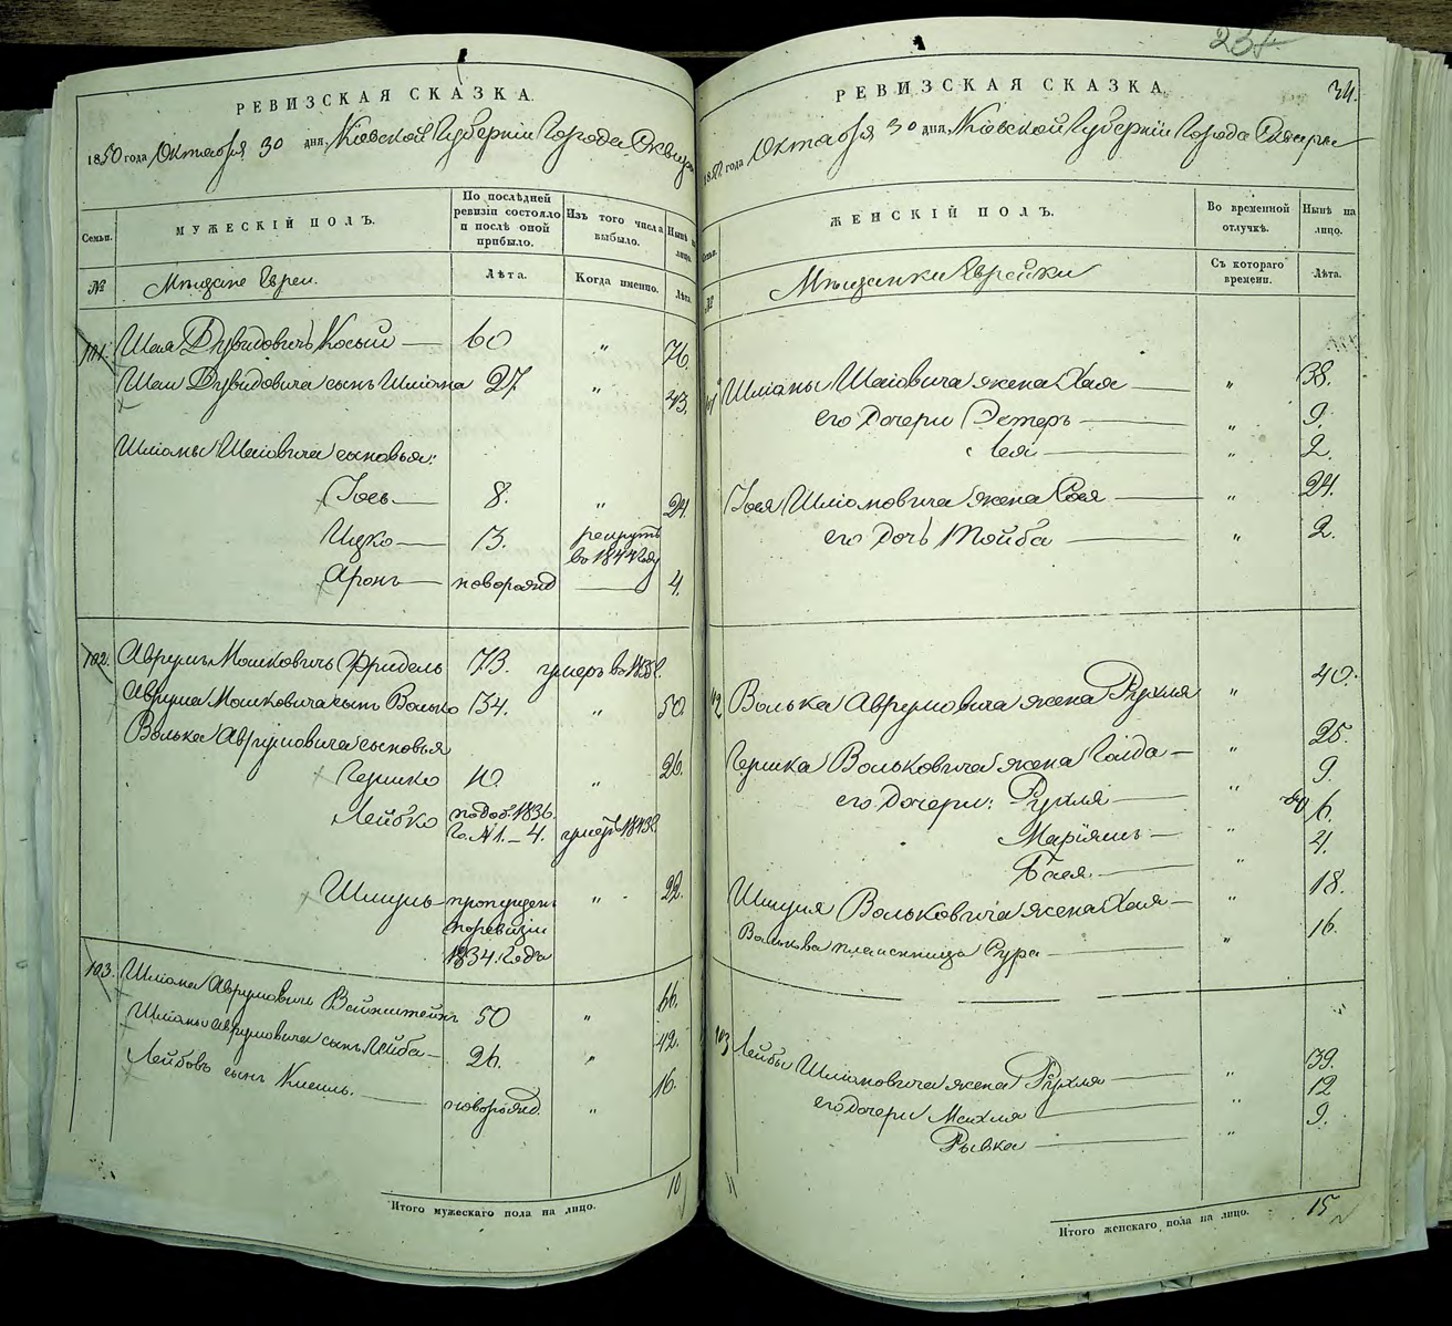 РЕВИЗСКАЯ СКАЗКА.
1850 года Октября 30 дня, Кіевской Губерніи Города Сквиры
Семьи.
МУЖЕСКІЙ ПОЛЪ.
По послѣдней ревизіи состояло и послѣ оной прибыло.
Изъ того числа выбыло.
Нынѣ на лицо.
№
Мѣщане Евреи.
Лѣта.
Когда именно.
Лѣта.
101. Шая Дувидовичъ Косый — 60 " 76.
Шаи Дувидовича сынъ Шліома 27 " 43.
Шліомы Шаіовича сыновья:
Іось — 8. " 24.
Ицко — 13. рекрутъ во 1844 году
Аронъ — новорожд — 4.
102. Аврумъ Мошковичъ Фридель 73. умеръ в
Аврума Мошковича сынъ Волько 34. " 50
Волька Аврумовича сыновья
Гершко 10. " 26.
Лейбко подоб. 1836. Го. №1. — 4. умеръ 1843
Шмуль — пропущен. по ревизіи 1834. Года " 22.
103. Шліома Аврумовичъ Вайнштейнъ 50 " 66.
Шліомы Аврумовича сынъ Лейба — 26. " 42.
Лейбовъ сынъ Кисиль. — новорожд. " 16.
Итого мужескаго пола на лицо. 10
34.
РЕВИЗСКАЯ СКАЗКА.
1850 года Октября 30 дня, Кіевской Губерніи Города Сквиры
Семьи.
ЖЕНСКІЙ ПОЛЪ.
Во временной отлучкѣ.
Нынѣ на лицо.
№
Мѣщанки Еврейки
Съ котораго времени.
Лѣта.
101 Шліомы Шаіовича жена Хая — " 38.
его дочери Эстеръ — " 9.
Лея — " 2.
Іося Шліомовича жена Сося — " 24.
его дочь Тойба — " 2.
102 Волька Аврумовича жена Рухля " 40.
Гершка Вольковича жена Голда — " 25.
его дочери: Рухля — " 9.
Маріямъ — " 6.
Бася. — " 4.
Шмуля Вольковича жена Хая — " 18.
Волькова племянница Сура — " 16.
103 Лейбы Шліомовича жена Рухля — " 39.
его дочери Махля — 12
Рывка — " 9.
Итого женскаго пола на лицо. 15